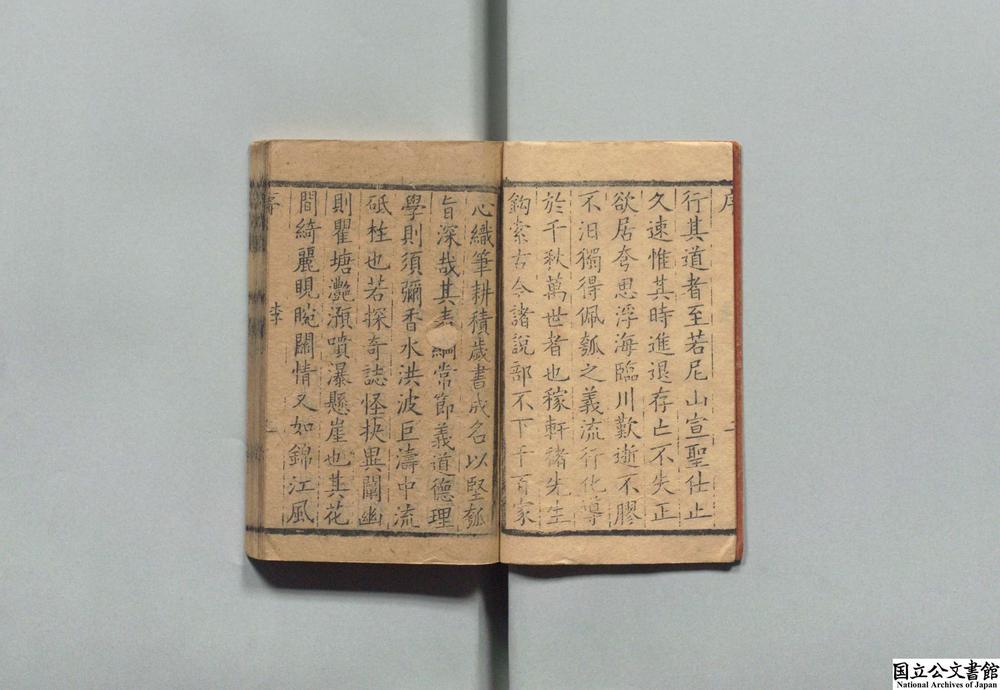 序
行其道者至若尼山宣聖仕止
久速惟其時進退存亡不失正
欲居夸思浮海臨川歎逝不膠
不汨獨得佩瓠之義流行化導
於千秋萬世者也稼軒諸先生
鈎索古今諸說部不下千百家
心織筆耕積歲書成名以堅瓠
旨深哉其表綱常節義道德理
學則須彌香水洪波巨濤中流
砥柱也若探奇誌怪抉異闡幽
則瞿塘灔澦噴瀑懸崖也其花
間綺麗睍睆關情又如錦江風
序
李
国立公文書館
National Archives of Japan